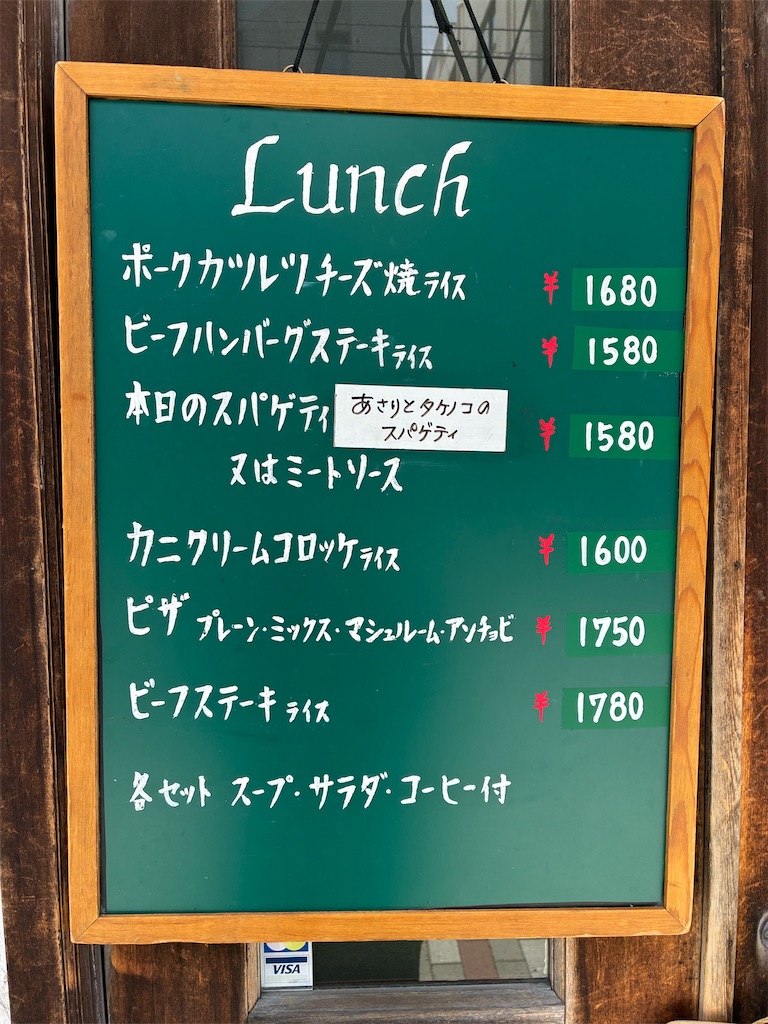 Lunch
ポークカツレツチーズ焼ライス ¥ 1680
ビーフハンバーグステーキライス ¥ 1580
本日のスパゲティ あさりとタケノコの
スパゲティ ¥ 1580
又はミートソース
カニクリームコロッケライス ¥ 1600
ピザ プレーン・ミックス・マシュルーム・アンチョビ ¥ 1750
ビーフステーキライス ¥ 1780
各セット スープ・サラダ・コーヒー付
VISA